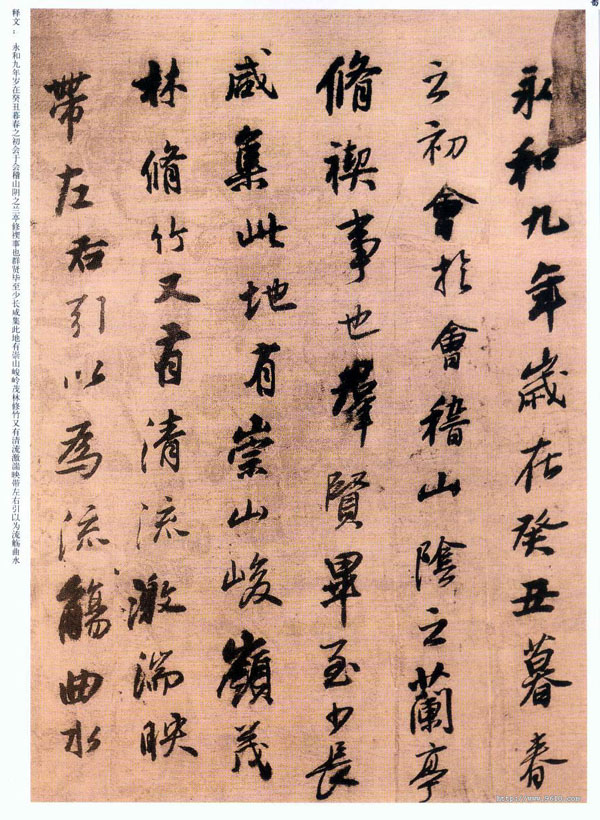 永和九年歲在癸丑暮春
之初會於會稽山陰之蘭亭
脩禊事也羣賢畢至少長
咸集此地有崇山峻嶺茂
林脩竹又有清流激湍映
帶左右引以為流觴曲水
释文：永和九年岁在癸丑暮春之初会于会稽山阴之兰亭修禊事也群贤毕至少长咸集此地有崇山峻岭茂林修竹又有清流激湍映带左右引以为流觞曲水
Http://www.9610.com